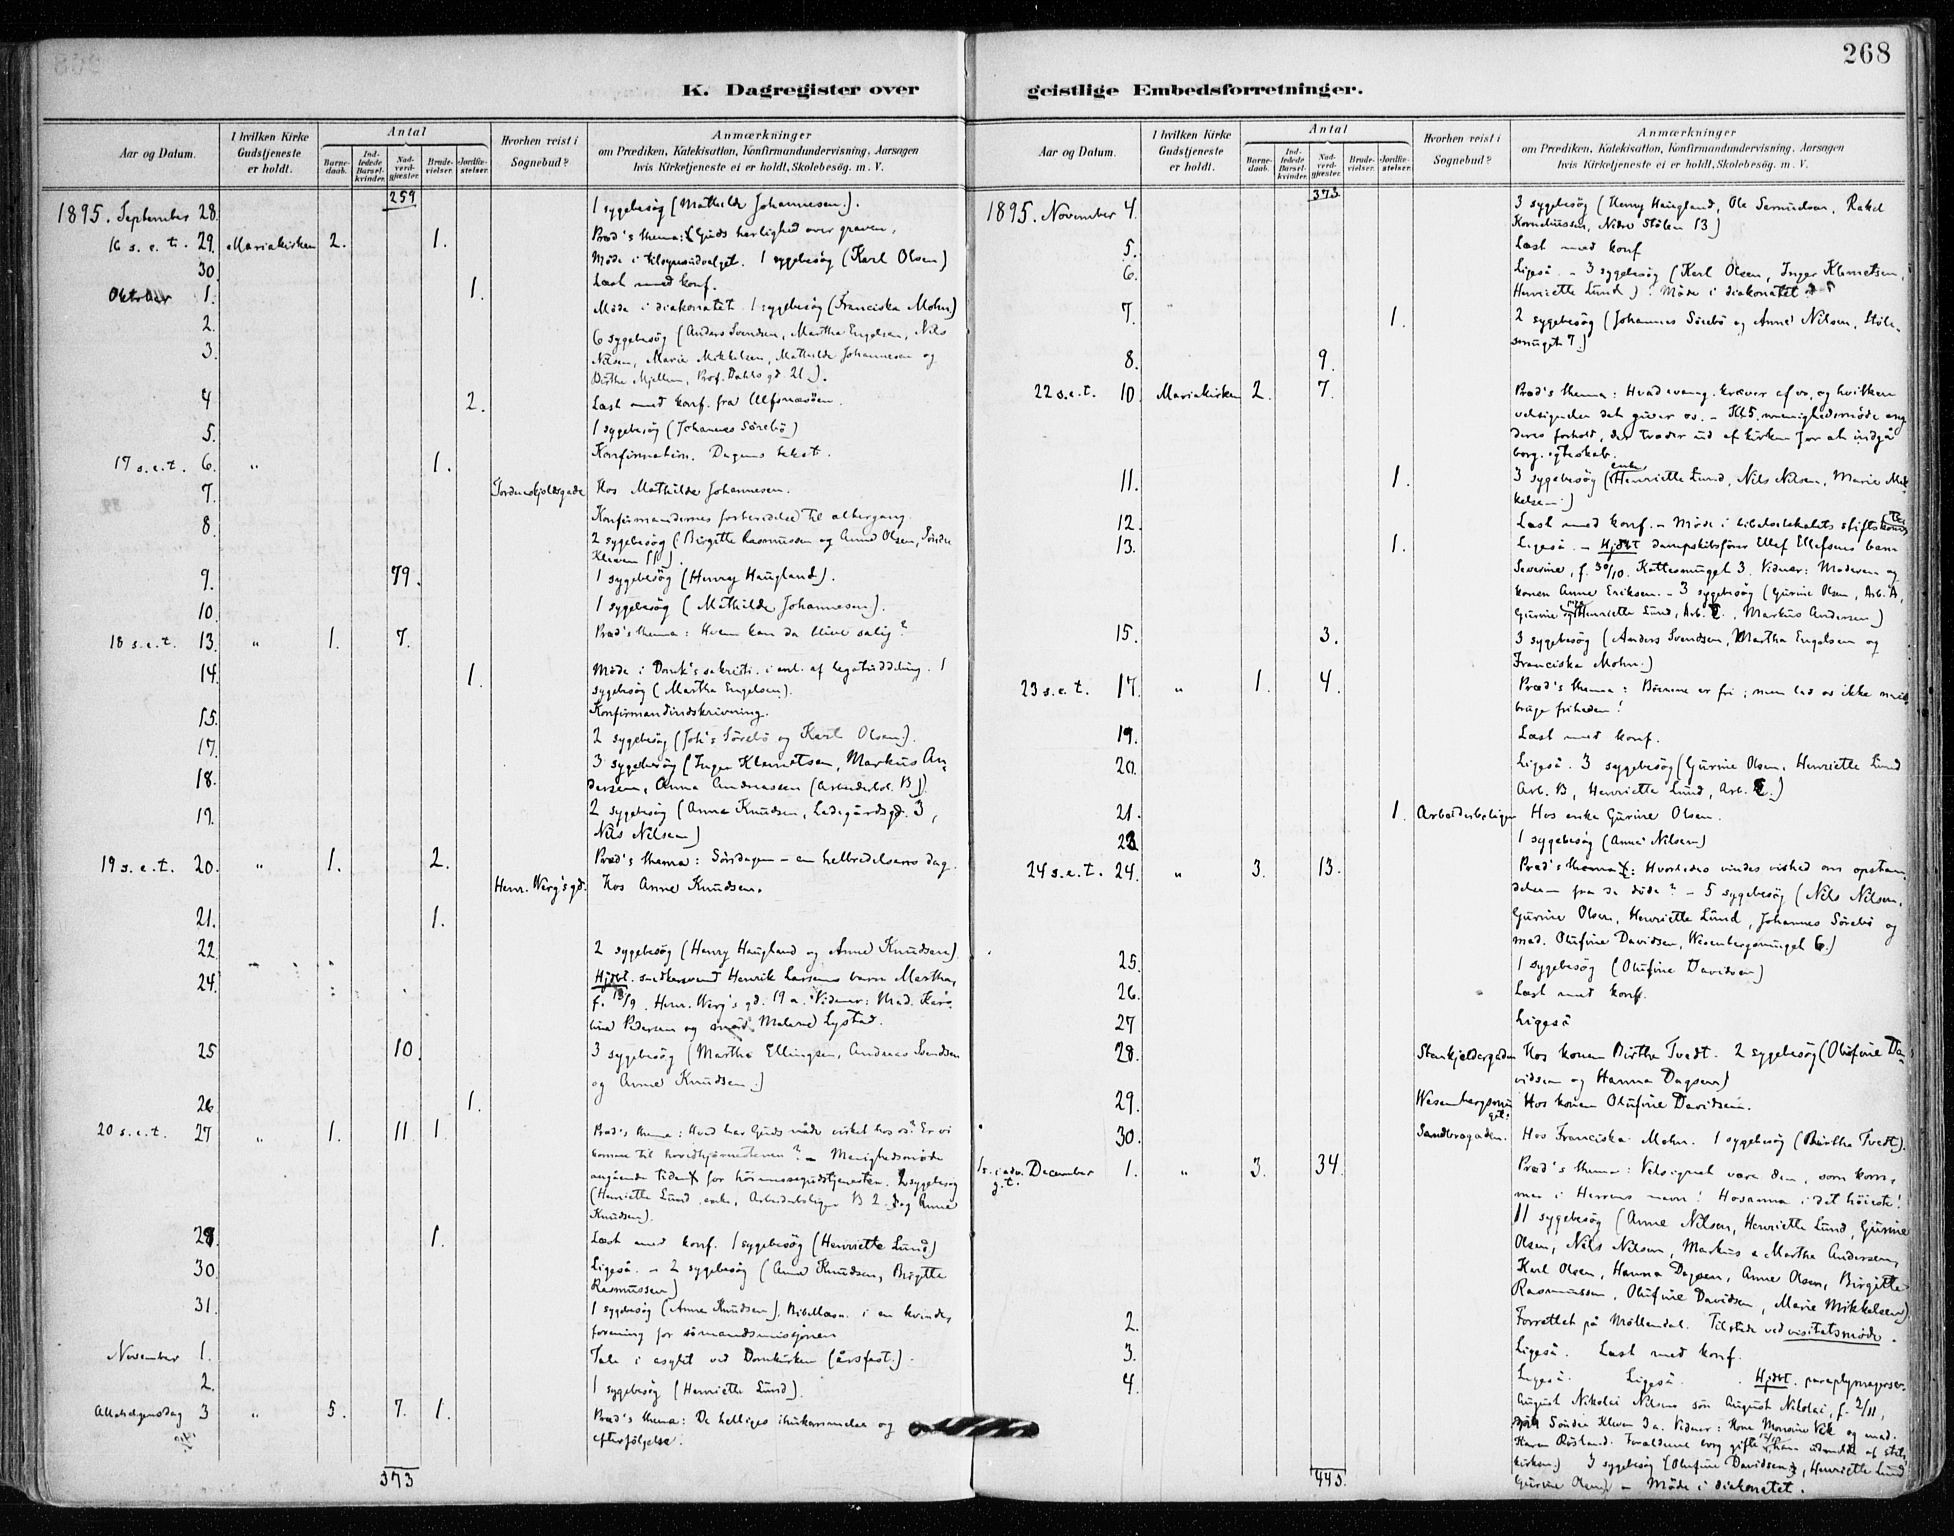 268
K. Dagregister over geistlige Embedsforretninger.
Aar og Datum.
I hvilken Kirke Gudstjeneste er holdt.
Antal
Barnedaab.
Indledede Barselkvinder.
Nadverdgjæster.
Brudevielser.
Jordfæstelser.
Hvorhen reist i Sognebud?
Anmærkninger
om Prædiken, Katekisation, Konfirmandundervisning, Aarsagen
hvis Kirketjeneste ei er holdt, Skolebesøg. m. V.
259
1895. September 28. 1 sygebesøg (Mathilde Johannesen).
16 s. e. t. 29. Mariakirken 2. 1. Præd's thema: Guds herlighed over graven.
30. Møde i tilsynsudvalget. 1 sygebesøg (Karl Olsen)
Oktober 1. 1. Læst med konf.
2. Møde i diakonatet. 1 sygebesøg (Franciska Mohn)
3. 6 sygebesøg (Anders Svendsen, Martha Engelsen, Nils
Nilsen, Marie Mikkelsen, Mathilde Johannesen og
Birthe Mjellem, Prof. Dahls gd. 21.).
4 2. Læst med konf. fra
5. 1 sygebesøg (Johannes Sørebø)
17 s. e. t. 6. " 1. Konfirmation. Dagens tekst.
7. Tordenskjoldsgade Hos Mathilde Johannesen.
8. Konfirmandernes forberedelse til altergang.
2 sygebesøg (Birgitte Rasmussen og Anne Olsen, Søndre
Kleven
9. 79. 1 sygebesøg (Henry Haugland).
10. 1 sygebesøg (Mathilde Johannesen).
18 s. e. t. 13. " 1. 7. Præd's thema: Hvem kan da blive salig?
14. 1. Møde i Domk's sakristi i anl. af legatuddeling. 1
sygebesøg (Martha Engelsen).
15. Konfirmandindskrivning.
17. 2 sygebesøg (Joh's Sørebø og Karl Olsen).
18. 3 sygebesøg (Inger Klemetsen, Markus An-
dersen, Anna Andreassen (Arbeiderbol. B)).
19. 2 sygebesøg (Anne Knudsen, Ladegårdsgd. 3,
Nils Nilsen)
19 s. e. t. 20. " 1. 2. Præd's thema: Søndagen – en helbredelsens dag.
Henr. Werg's gd. Hos Anne Knudsen.
21. 1.
22. 2 sygebesøg (Henry Haugland og Anne Knudsen)
24. Hjdbt. snedkersvend Henrik Larsens barn Martha,
f. /9. Henr. Werg's gd. 19 a. Vidner: Mad.
Pedersen og mad. Malene Lystad.
25 10. 3 sygebesøg (Martha Ellingsen, Andreas Svendsen
og Anne Knudsen.)
26 1.
20 s. e. t. 27 " 1. 11 1. Præd's thema: Hvad har Guds nåde virket hos os? Er vi
komne til hovedhjørnestenen? – Menighedsmøde
angående tiden for høimessegudstjenesten. 2 sygebesøg
(Henriette Lund, enke, Arbeiderboliger B 2. og Anne
Knudsen).
28. 1. Læst med konf. 1 sygebesøg (Henriette Lund)
30 Ligeså. – 2 sygebesøg (Anne Knudsen, Birgitte
Rasmussen)
31. 1 sygebesøg (Anne Knudsen). Bibellæsn. i en kvinde-
forening for sømandsmissjonen
November 1. Tale i asylet ved Domkirken (årsfest.).
2. 1 sygebesøg (Henriette Lund).
Allehelgensdag 3 " 5. 7. 1. Præd's thema: De helliges ihukommelse og
efterfølgelse.
373
373
1895. November 4. 3 sygebesøg (Henry Haugland, Ole Samuelsen, Rakel
Korneliussen, Nedre Stølen 13)
5. Læst med konf
6. Ligeså. – 3 sygebesøg (Karl Olsen, Inger Klemetsen,
Henriette Lund). Møde i diakonatet
7. 1. 2 sygebesøg (Johannes Sørebø og Anne Nilsen, Støle-
smuget 7.)
8. 9.
22 s. e. t. 10 Mariakirken 2. 7. Præd's thema: Hvad evang. kræver af os, og hvilken
velsignelse det giver os. – Kl 5 menighedsmøde ang.
deres forhold, der træder ud af kirken for at indgå
borg. egteskab.
11. 1. 3 sygebesøg (enke Henriette Lund, Nils Nilsen, Marie Mik-
kelsen.)
12. Læst med konf. – Møde i bibelselskabets
13. 1. Ligeså. – Hjdbt dampskibsfører Ellef Ellefsens barn
Severine, f. 30/10. Kattesmuget 3. Vidner: Moderen og
konen Anne Eriksen. – 3 sygebesøg (Gurine Olsen, Arb. A,
Henriette Lund, Arb. , Markus Andersen)
15. 3. 3 sygebesøg (Anders Svendsen, Martha Engelsen og
Franciska Mohn.)
23 s. e. t. 17. " 1. 4. Præd's thema: Børnene er fri; men lad os ikke mis-
bruge friheden!
19. Læst med konf.
20. Ligeså. 3 sygebesøg (Gurine Olsen, Henriette Lund
Arb. B, Henriette Lund, Arb. .)
21. 1. Arbeiderboliger Hos enke Gurine Olsen.
23 1 sygebesøg (Anne Nilsen)
24 s. e. t. 24. " 3. 13. Præd's thema: Hvorledes vindes vished om opstan-
delsen fra de døde? – 5 sygebesøg (Nils Nilsen,
Gurine Olsen, Henriette Lund, Johannes Sørebø og
mad. Olufine Davidsen, Wesenbergsmuget 6.)
25. 1 sygebesøg (Olufine Davidsen)
26. Læst med konf.
27 Ligeså
28. Stenkjeldergaden Hos konen Birthe Tvedt. 2 sygebesøg (Olufine Da-
vidsen og Hanna Dagsen)
29. Wesenbergsmuget. Hos konen Olufine Davidsen.
30. Sandbrogaden. Hos Franciska Mohn. 1 sygebesøg (Birthe Tvedt).
1 s. i adv. December 1. " 3. 34. Præd's thema: Velsignet være den, som kom-
mer i Herrens navn! Hosanna i det høieste!
11 sygebesøg (Anne Nilsen, Henriette Lund, Gurine
Olsen, Nils Nilsen, Markus & Martha Andersen,
Karl Olsen, Hanna Dagsen, Anne Olsen, Birgitte
Rasmussen, Olufine Davidsen, Marie Mikkelsen).
2. Forrettet på Møllendal. Tilstede ved visitatsmøde.
3. Ligeså. Læst med konf.
4. Ligeså. Ligeså. Hjdbt. paraplymager
August Nikolai Nilsens søn August Nikolai, f. 2/11,
Søndre Kleven 3a. Vidner: Kone Monsine Vik og mad.
Karen Røsland. Forældrene borg. gifte, han udmeldt af stats-
kirken.) 3 sygebesøg (Olufine Davidsen, Henriette Lund
Gurine Olsen) – Møde i diakonatet.
443.